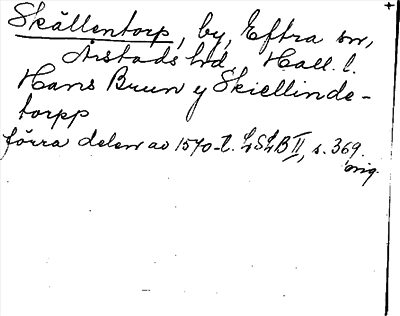 Skällentorp, by, Eftra sn,
Årstads hd, Hall. l.
Hans Bruun y Skiellinde-
torpp
förra delen av 1570-t. LSLB II, s. 369.
orig.